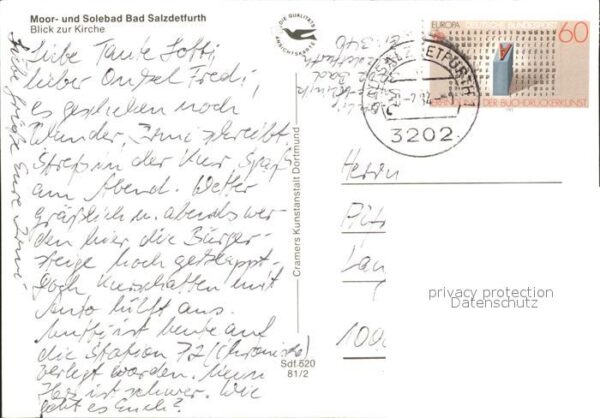 Moor- und Solebad Bad Salzdetfurth
Blick zur Kirche
Liebe Tante Lotti,
lieber Onkel Fredi,
es geschehen noch
Wunder, Irmi schreibt.
Streß in der Kur, Spaß
am Abend. Wetter
gräßlich u. abends wer-
den hier die Bürger-
steige hochgeklappt.
Doch Kurschatten mit
Auto hilft aus.
Mutti ist heute auf
die Station 72 (Chronische)
verlegt worden. Mein
Herz ist schwer. Wie
geht es Euch?
Liebe Grüße Eure Irmi
DIE QUALITÄTS
ANSICHTSKARTE
Cramers Kunstanstalt Dortmund
Sdf 520
81/2
EUROPA DEUTSCHE BUNDESPOST
60
DER BUCHDRUCKERKUNST
BAD SALZDETFURTH 1
3202
Herrn
privacy protection
Datenschutz
100